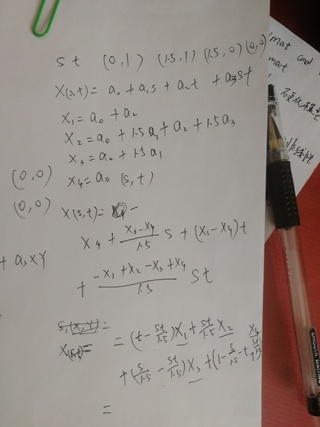 s t (0,1) (1.5,1) (1.5,0) (0,0)
X(s,t) = a₀ + a₁s + a₂t + a₃st
X₁ = a₀ + a₂
X₂ = a₀ + 1.5a₁ + a₂ + 1.5a₃
X₃ = a₀ + 1.5a₁
(0,0) X₄ = a₀ (s,t)
(0,0) X(s,t) =
X₄ + (X₃-X₄)/1.5 s + (X₁-X₄)t
+ a₃XY
+ (-X₁+X₂-X₃+X₄)/1.5 st
X(s,t) = = (t - st/1.5)X₁ + st/1.5 X₂
+ (s/1.5 - st/1.5)X₃ + (1 - s/1.5 - t + st/1.5)X₄
=
mat and
mat